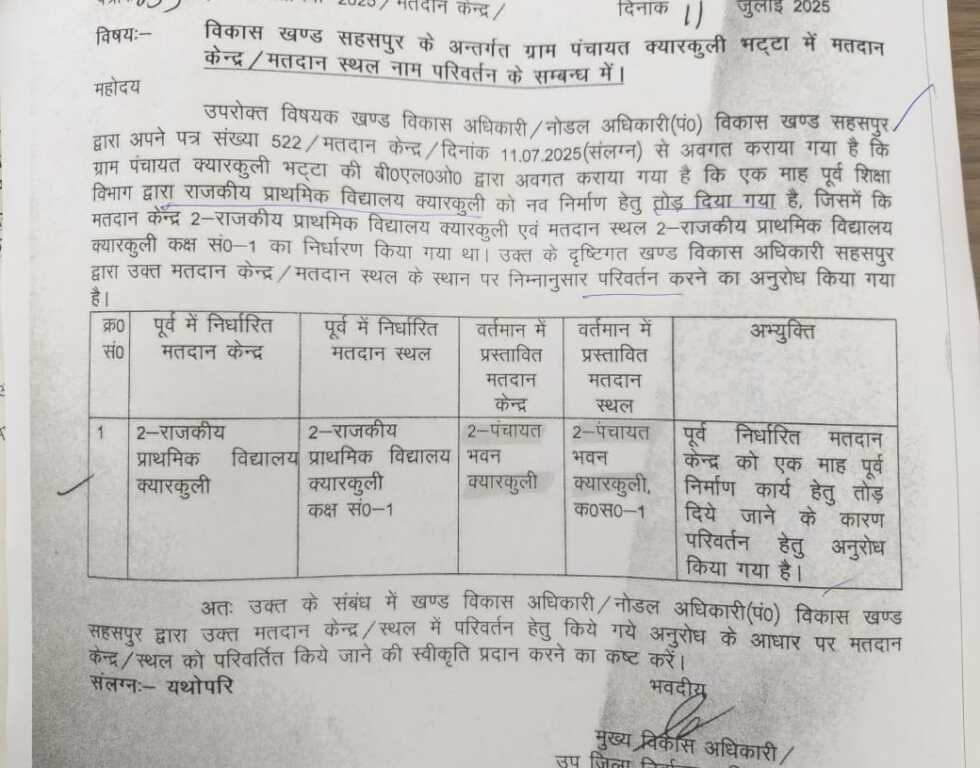 2025/मतदान केन्द्र/ दिनांक 11 जुलाई 2025
विषयः– विकास खण्ड सहसपुर के अन्तर्गत ग्राम पंचायत क्यारकुली भट्टा में मतदान
केन्द्र/मतदान स्थल नाम परिवर्तन के सम्बन्ध में।
महोदय
उपरोक्त विषयक खण्ड विकास अधिकारी/नोडल अधिकारी(पं0) विकास खण्ड सहसपुर
द्वारा अपने पत्र संख्या 522/मतदान केन्द्र/दिनांक 11.07.2025(संलग्न) से अवगत कराया गया है कि
ग्राम पंचायत क्यारकुली भट्टा की बी0एल0ओ0 द्वारा अवगत कराया गया है कि एक माह पूर्व शिक्षा
विभाग द्वारा राजकीय प्राथमिक विद्यालय क्यारकुली को नव निर्माण हेतु तोड़ दिया गया है, जिसमें कि
मतदान केन्द्र 2–राजकीय प्राथमिक विद्यालय क्यारकुली एवं मतदान स्थल 2–राजकीय प्राथमिक विद्यालय
क्यारकुली कक्ष सं0–1 का निर्धारण किया गया था। उक्त के दृष्टिगत खण्ड विकास अधिकारी सहसपुर
द्वारा उक्त मतदान केन्द्र/मतदान स्थल के स्थान पर निम्नानुसार परिवर्तन करने का अनुरोध किया गया
है।
क्र0 पूर्व में निर्धारित पूर्व में निर्धारित वर्तमान में वर्तमान में अभ्युक्ति
सं0 मतदान केन्द्र मतदान स्थल प्रस्तावित प्रस्तावित
मतदान मतदान
केन्द्र स्थल
1 2–राजकीय 2–राजकीय 2–पंचायत 2–पंचायत पूर्व निर्धारित मतदान
प्राथमिक विद्यालय प्राथमिक विद्यालय भवन भवन केन्द्र को एक माह पूर्व
क्यारकुली क्यारकुली क्यारकुली क्यारकुली, निर्माण कार्य हेतु तोड़
कक्ष सं0–1 क0स0–1 दिये जाने के कारण
परिवर्तन हेतु अनुरोध
किया गया है।
अतः उक्त के संबंध में खण्ड विकास अधिकारी/नोडल अधिकारी(पं0) विकास खण्ड
सहसपुर द्वारा उक्त मतदान केन्द्र/स्थल में परिवर्तन हेतु किये गये अनुरोध के आधार पर मतदान
केन्द्र/स्थल को परिवर्तित किये जाने की स्वीकृति प्रदान करने का कष्ट करें।
संलग्नः– यथोपरि भवदीय
मुख्य विकास अधिकारी/
उप जिला